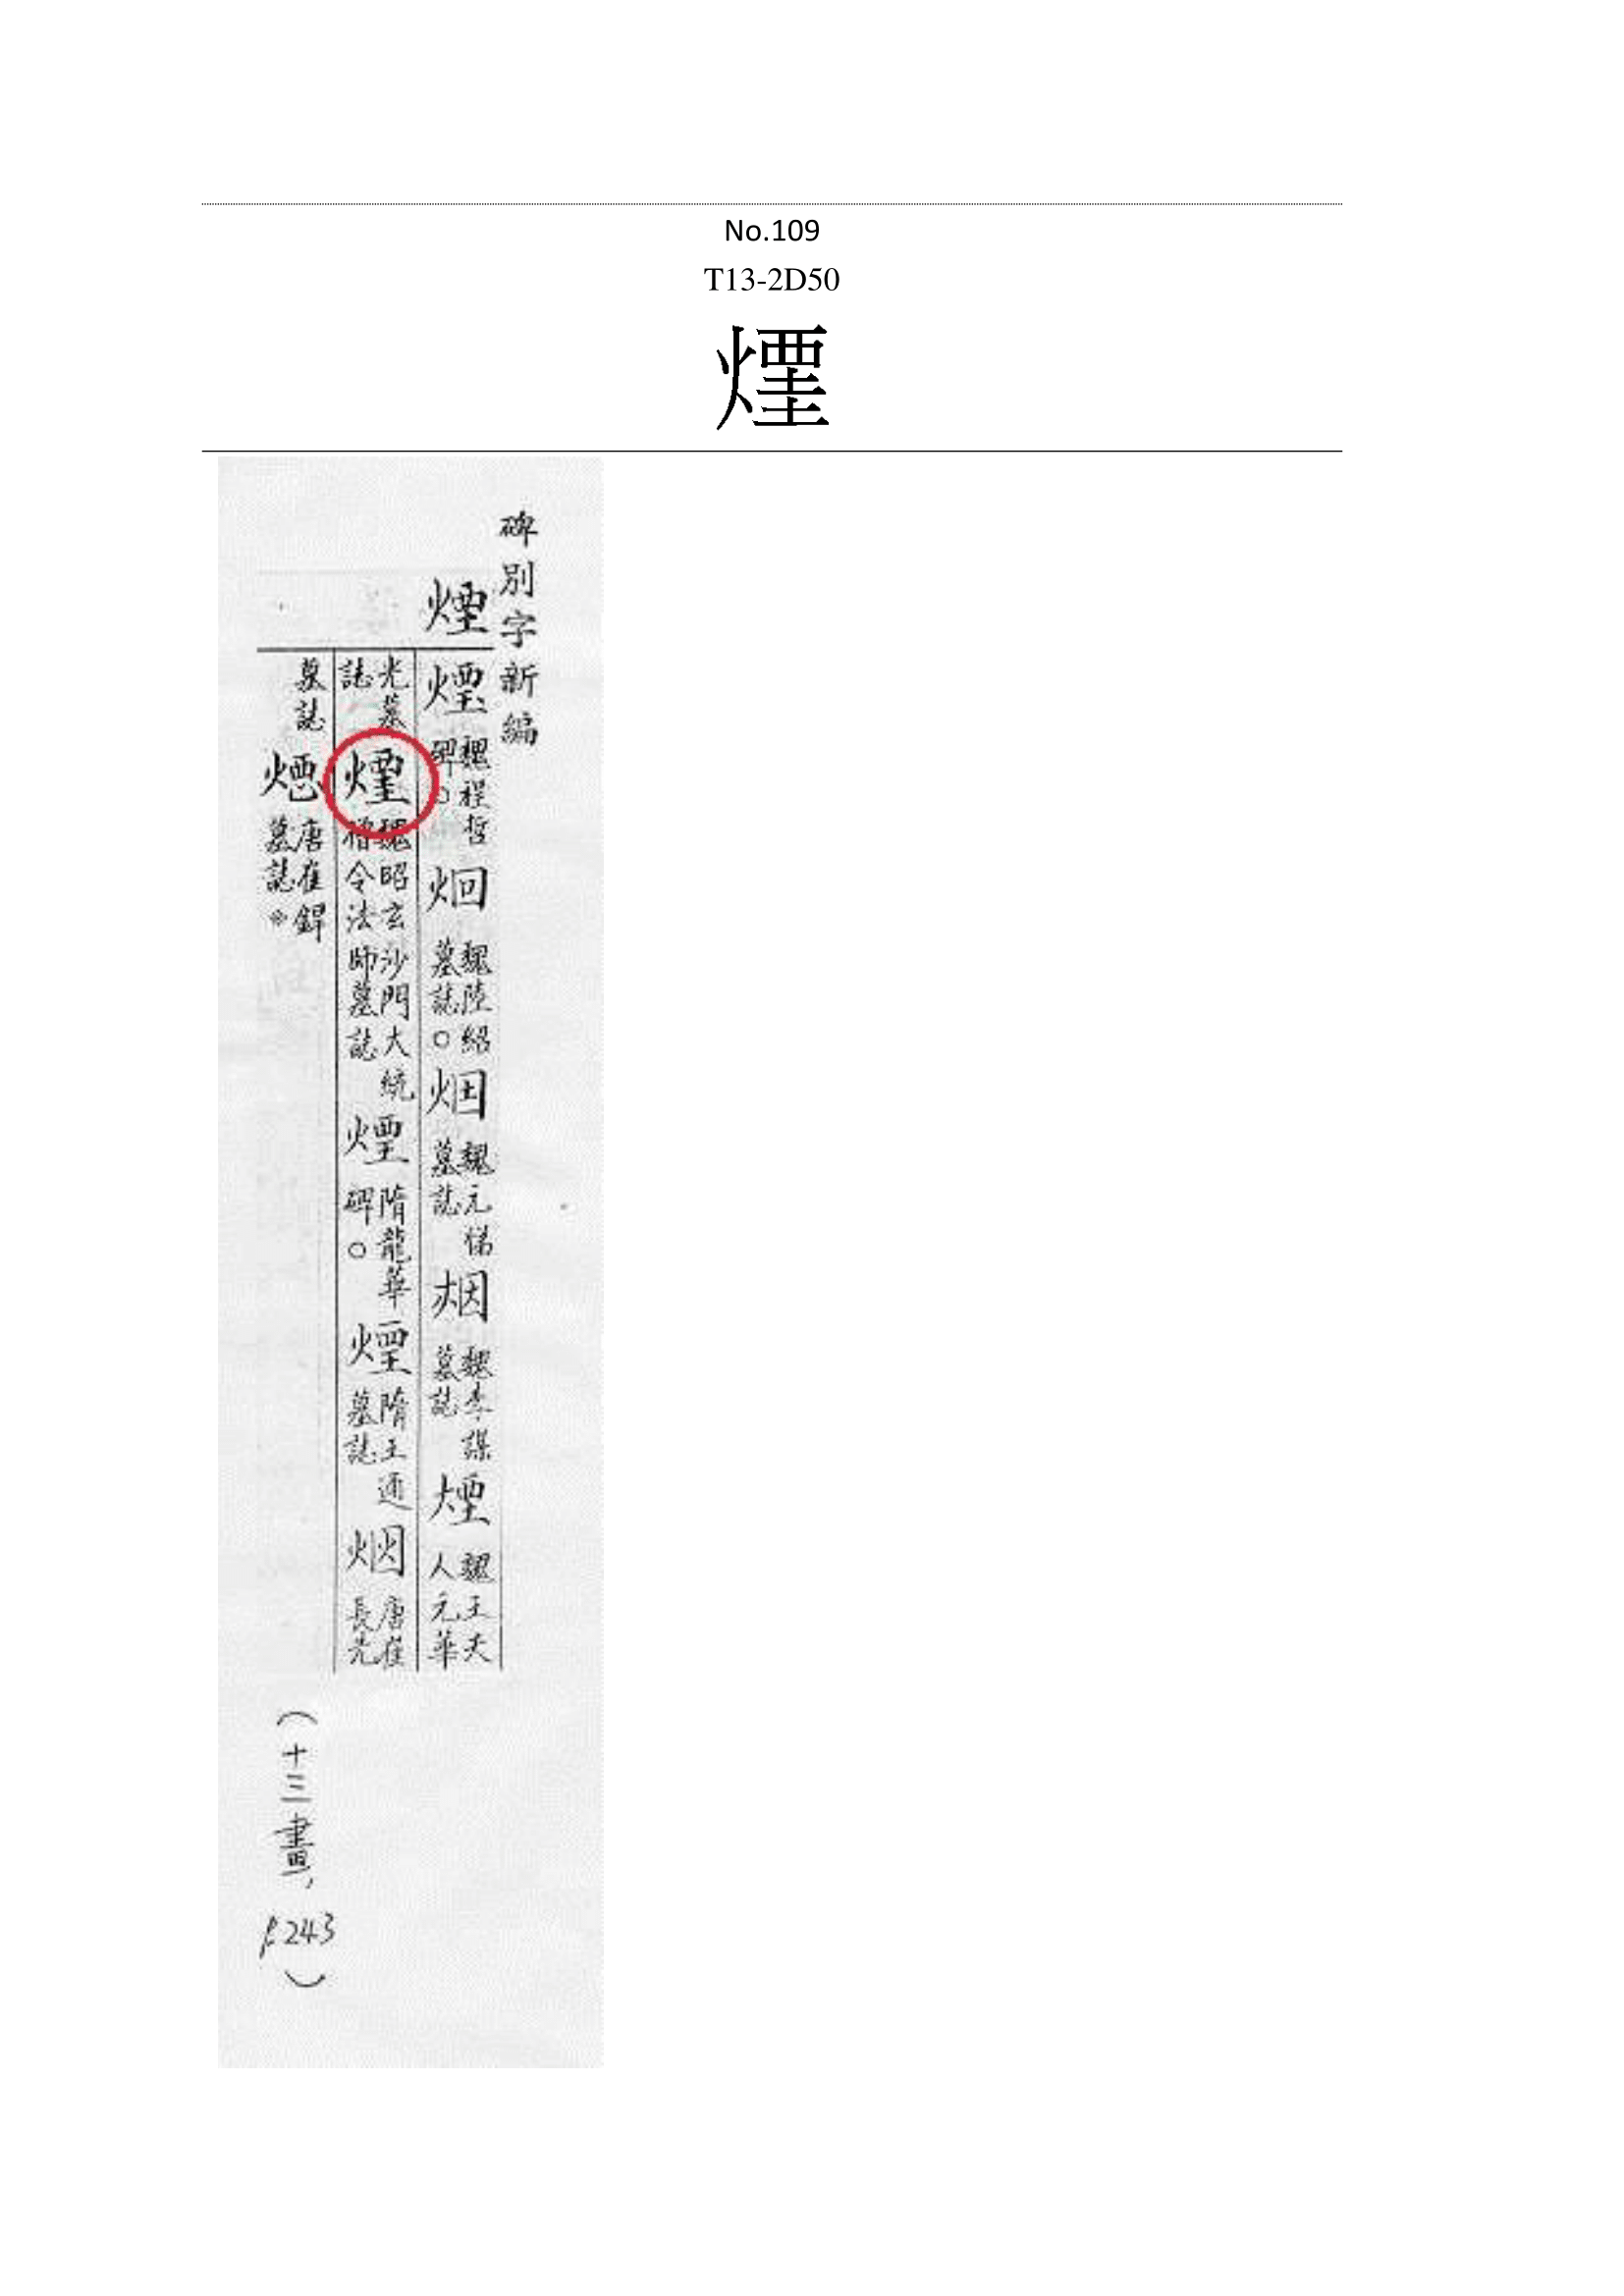 No.109
T13-2D50
煙
碑別字新編
煙
煙 魏程哲碑○ 烟 魏陸紹墓誌○ 烟 魏元悌墓誌 烟 魏李謀墓誌 煙 魏王夫人元華
光墓誌 煙 魏昭玄沙門大統僧令法師墓誌 煙 隋龍華碑○ 煙 隋王通墓誌 烟 唐崔長先
墓誌 唐崔銲墓誌※
(十三畫,
p.243
)